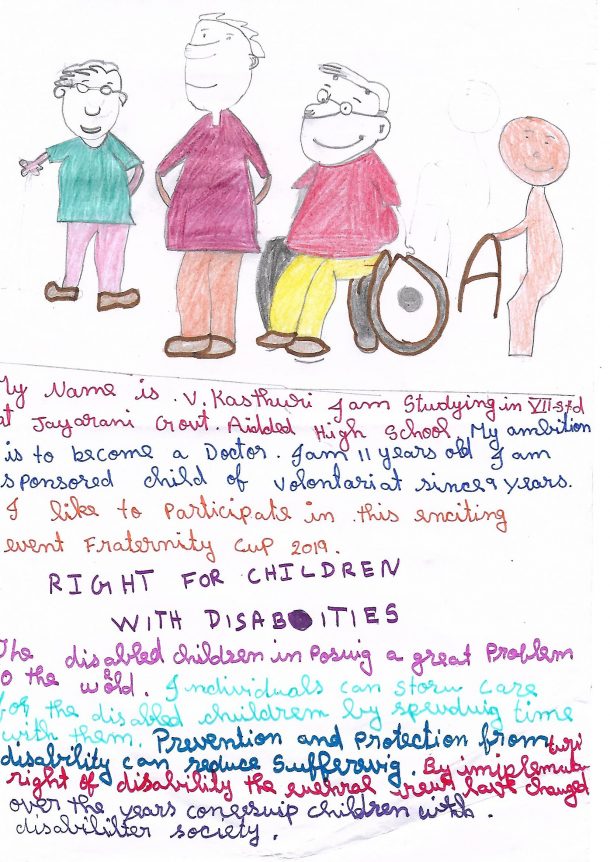 My Name is V. Kasthuri I am Studying in VII-std
at Jayarani Govt. Aidded High School My ambition
is to become a Doctor. I am 11 years old I am
sponsored child of Volontariat since 9 years.
I like to Participate in this enciting
event Fraternity Cup 2019.
RIGHT FOR CHILDREN
WITH DISABOITIES
The disabled children in Posuig a great Problem
to the world. Individuals can storu care
for the disabled children by spending time
with them. Prevention and Protection from
disability can reduce Suffering. By
right of disability the have changed
over the years children with
society.